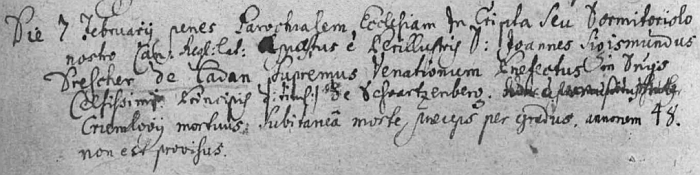 Die 7 Februarij penes Parochialem Ecclesiam In Cripta Seu Dormitoriolo
nostro Can: Regl: Lat: est è Perillustris D: Joannes Sigismundus
Drescher de Cadan Supremus Venationum Praefectus
Celsissimi Principis de Schwartzenberg.
Crumlovij mortuus, Subitaneâ morte, praeceps per gradus, annorum 48.
non est provisus.